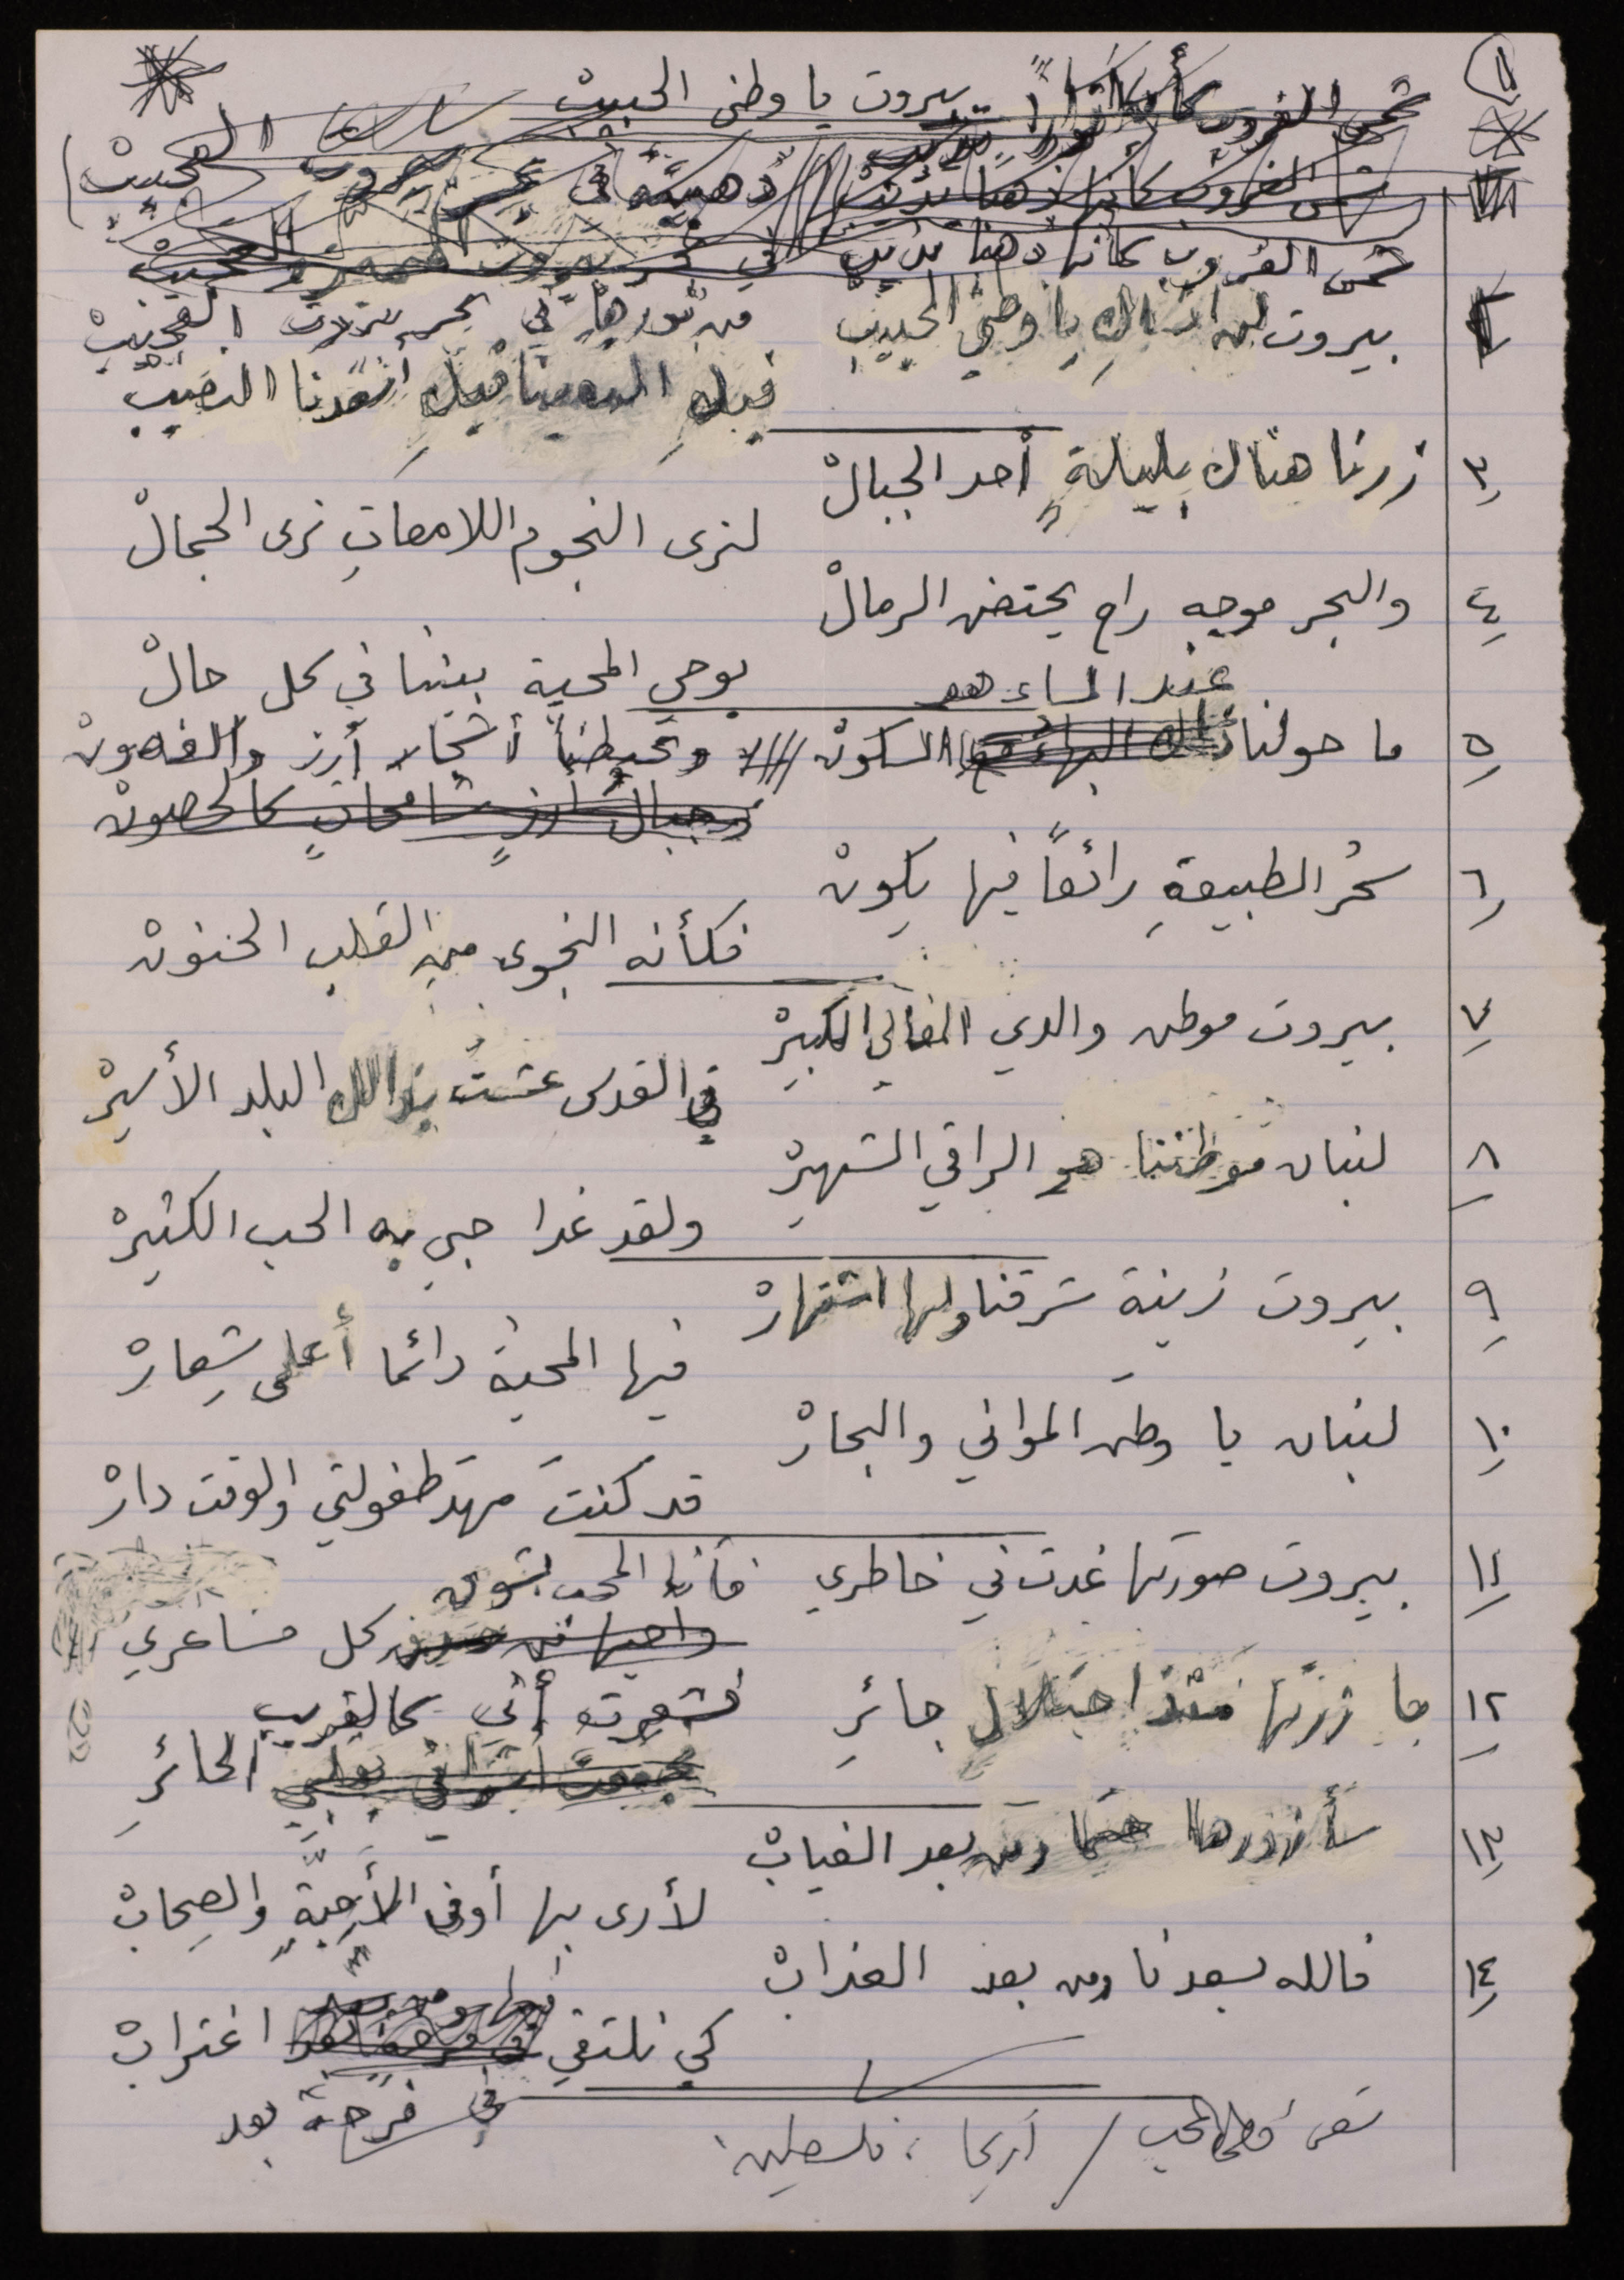 ١
بيروت يا وطني الحبيبْ
شمس الغروب كأنها ذهبًا يذيبْ
العجيبْ
شمس الغروب كأنها ذهبًا يذيبْ
٢ بيروت لن أنساكِ يا وطني الحبيبْ
من نورها في بحر بيروت العجيبْ
فيكِ المنى فيكِ أسعدنا النصيبْ
٣ زرنا هناك بليلةٍ أحد الجبالْ
لنرى النجوم اللامعاتِ نرى الجمالْ
٤ والبحر موجه راح يحتضن الرمالْ
يوحي المحبة بيننا في كل حالْ
عند المساء هو
٥ ما حولنا السكونْ وتحيطنا أشجار أرز والغصونْ
وجبال أرزٍ شامخاتٍ كالحصونْ
٦ سحْر الطبيعةِ رائعاً فيها يكونْ
فكأنه النجوى من القلب الحنونْ
٧ بيروت موطن والدي الغالي الكبيرْ
في القدس عشتُ بذالك البلد الأسيرْ
٨ لبنان موطننا هو الراقي الشهيرْ
ولقد غدا حبي به الحب الكثيرْ
٩ بيروت زينة شرقنا ولها اشتهارْ
فيها المحبة دائما أعلى شِعارْ
١٠ لبنان يا وطن المواني والبحارْ
قد كنتَ مهدَ طفولتي والوقت دارْ
١١ بيروت صورتها غدت في خاطري فأنا المحب بشوق
وأحبها من كل مشاعري
١٢ ما زرتها منذ احتلال جائرِ فشعرت أني كالغريب
الحائرِ
١٣ سأزورها حتما ومن بعد الغيابْ
لأرى بها أوفى الأحِبَّةِ والصِحابْ
١٤ فالله يسعدنا ومن بعد العذابْ
كي نلتقي اغترابْ
في فرحة بعد
شعر / أريحا، فلسطين